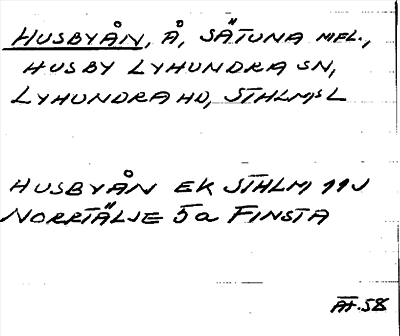 HUSBYÅN, Å, SÄTUNA MFL.,
HUSBY LYHUNDRA SN,
LYHUNDRA HD, STHLMS L
HUSBYÅN EK STHLM 11J
NORRTÄLJE 5a FINSTA
ÄH.58